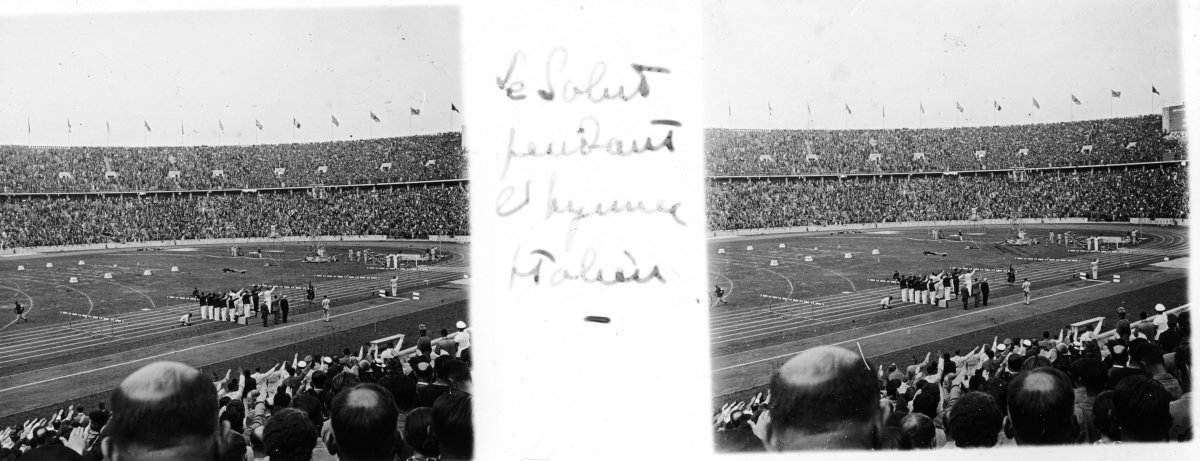 Le Salut
pendant
l'hymne
Italien